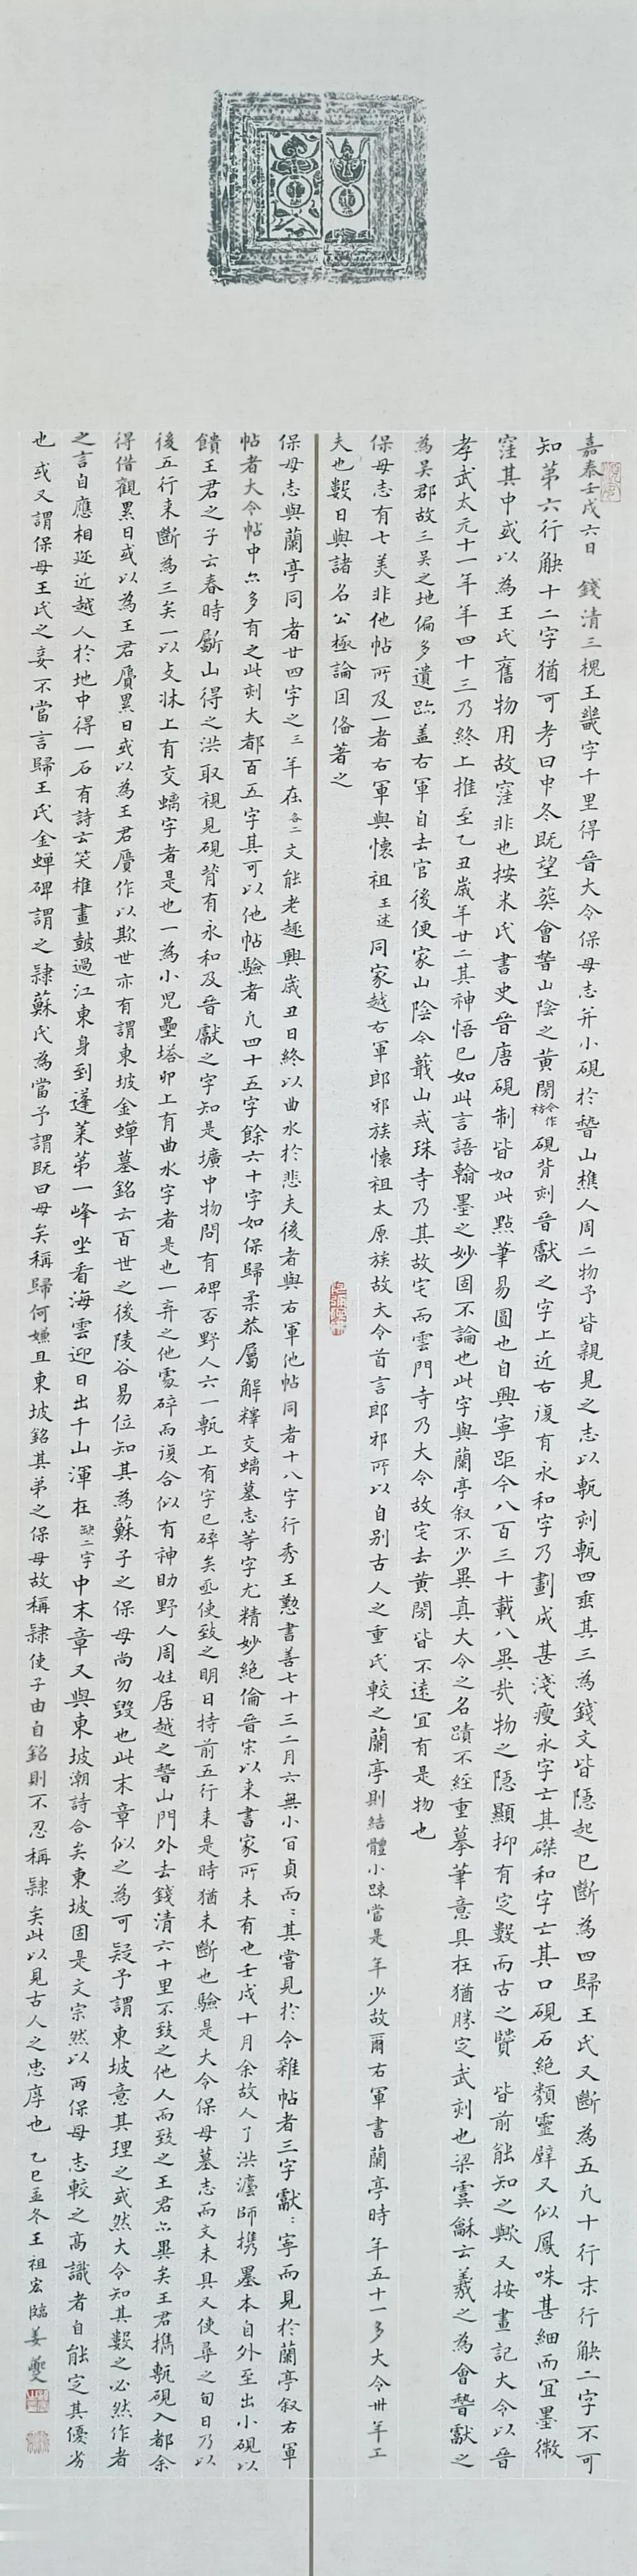 嘉泰壬戌六日　錢清三槐王畿字千里得晉大令保母志并小硯於稽山樵人周二物予皆親見之志以甎刻甎四垂其三為錢文皆隱起已斷為四歸王氏又斷為五凡十行末行缺二字不可
知第六行缺十二字猶可考曰中冬既望葬會稽山陰之黃閍硯背刻晉獻之字上近右復有永和字乃劃成甚淺瘦永字亡其磔和字亡其口硯石絕類靈壁又似鳳咮甚細而宜墨微
窪其中或以為王氏舊物用故窪非也按米氏書史晉唐硯制皆如此點筆易圓也自興寧距今八百三十載八異哉物之隱顯抑有定數而古之賢　皆前能知之歟又按畫記大令以晉
孝武太元十一年年四十三乃終上推至乙丑歲年廿二其神悟已如此言語翰墨之妙固不論也此字與蘭亭叙不少異真大令之名蹟不經重摹筆意具在猶勝定武刻也梁虞龢云羲之為會稽獻之
為吳郡故三吳之地偏多遺跡蓋右軍自去官後便家山陰今蕺山戒珠寺乃其故宅而雲門寺乃大令故宅去黃閍皆不遠宜有是物也
保母志有七美非他帖所及一者右軍與懷祖王述同家越右軍郎邪族懷祖太原族故大令首言郎邪所以自别古人之重氏較之蘭亭則結體小踈當是年少故爾右軍書蘭亭時年五十一多大令卅年工
夫也數日與諸名公極論因俻著之
保母志與蘭亭同者廿四字之三年在各二文能老趣興歲丑日終以曲水於悲夫後者與右軍他帖同者十八字行秀王懃書善七十三二月六無小冝貞而其嘗見於令雜帖者三字獻寧而見於蘭亭叙右軍
帖者大令帖中亦多有之此刻大都百五字其可以他帖驗者凡四十五字餘六十字如保歸柔恭屬解釋交螭墓志等字尤精妙絕倫晉宋以來書家所未有也壬戌十月余故人了洪灋師携墨本自外至出小硯以
饋王君之子云春時斸山得之洪取視見硯背有永和及晉獻之字知是壙中物問有碑否野人六一甎上有字已碎矣亟使致之明日持前五行来是時猶未斷也驗是大令保母墓志而文未具又使尋之旬日乃以
後五行来斷為三矣一以支牀上有交螭字者是也一為小兒壘塔卯上有曲水字者是也一弃之他處碎而復合似有神助野人周姓居越之稽山門外去錢清六十里不致之他人而致之王君亦異矣王君擕甎硯入都余
得借觀累日或以為王君贗累日或以為王君贗作以欺世亦有謂東坡金蟬墓銘云百世之後陵谷易位知其為蘇子之保母尚勿毀也此末章似之為可疑予謂東坡意其理之或然大令知其數之必然作者
之言自應相迩近越人於地中得一石有詩云笑椎畫鼓過江東身到蓬萊第一峰坐看海雲迎日出千山渾在缺二字中末章又與東坡潮詩合矣東坡固是文宗然以兩保母志較之高識者自能定其優劣
也或又謂保母王氏之妾不當言歸王氏金蟬碑謂之隸蘇氏為當予謂既曰母矣稱歸何嫌且東坡銘其弟之保母故稱隸使子由自銘則不忍稱隸矣此以見古人之忠厚也　乙巳孟冬王祖宏臨姜夔